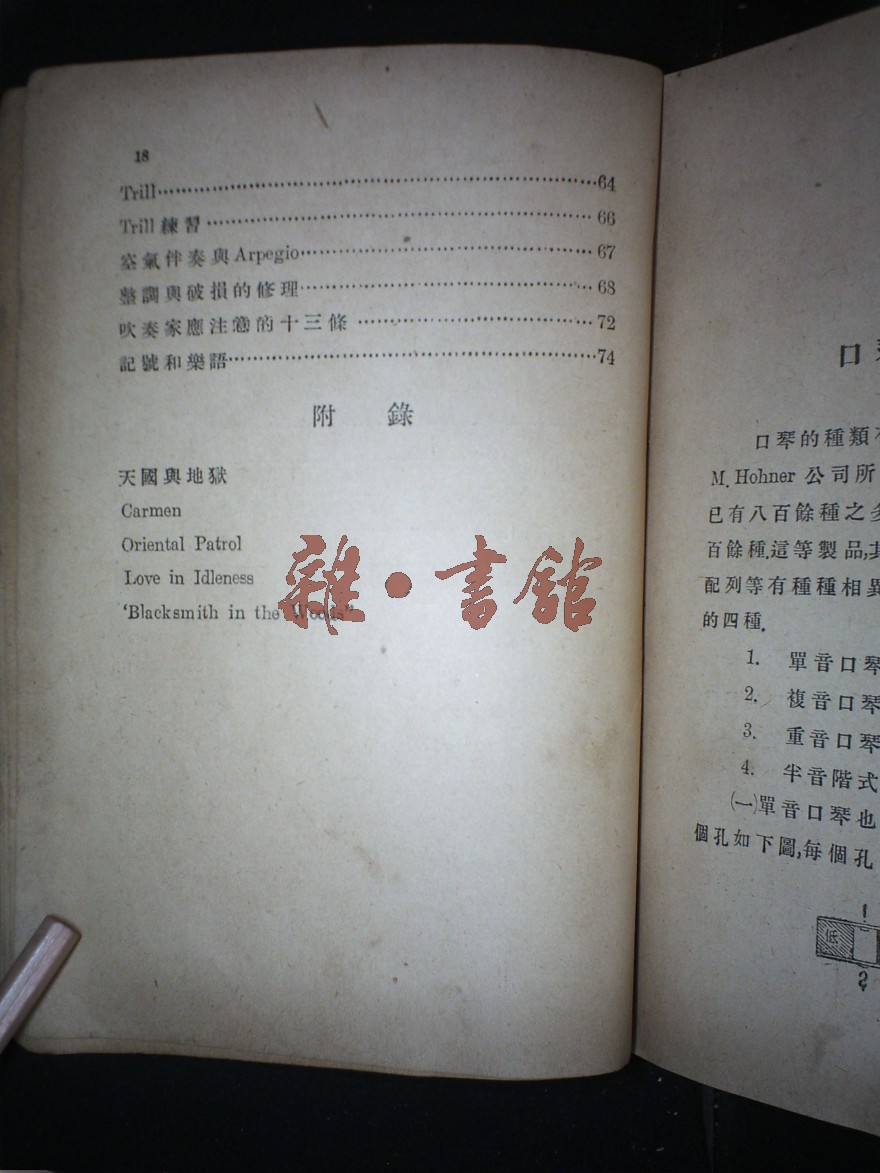 18
Trill……64
Trill 練習……66
空氣伴奏與Arpegio……67
整調與破損的修理……68
吹奏家應注意的十三條……72
記號和樂語……74
附 錄
天國與地獄
Carmen
Oriental Patrol
Love in Idleness
'Blacksmith in the Woods"
雜·書館
口琴
口琴的種類
M. Hohner 公司所
已有八百餘種之多
百餘種.這等製品,其
配列等有種種相異
的四種.
1. 單音口琴
2. 複音口琴
3. 重音口琴
4. 半音階式
(一)單音口琴也
個孔如下圖,每個孔
1
低
2